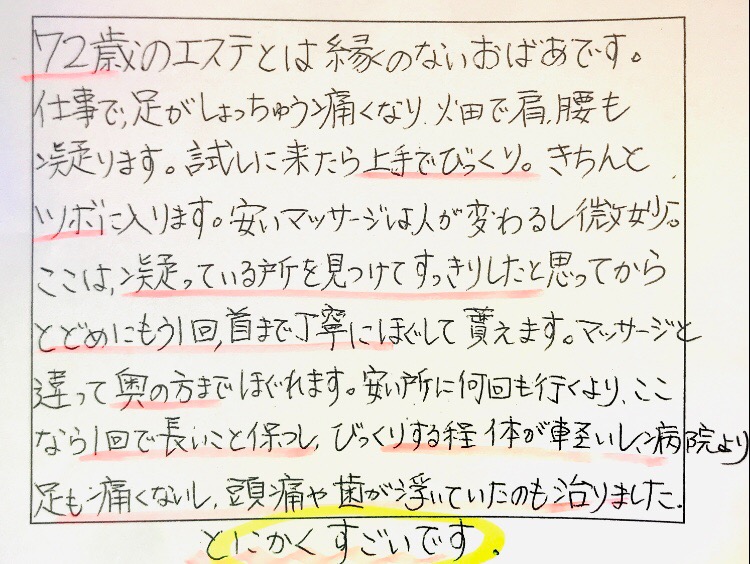 72歳のエステとは縁のないおばあです。
仕事で、足がしょっちゅう痛くなり、畑で肩、腰も
凝ります。試しに来たら上手でびっくり。きちんと
ツボに入ります。安いマッサージは人が変わるし微妙。
ここは、凝っている所を見つけてすっきりしたと思ってから
とどめにもう1回、首まで丁寧にほぐして貰えます。マッサージと
違って奥の方までほぐれます。安い所に何回も行くより、ここ
なら1回で長いこと保つし、びっくりする程体が軽いし、病院より
足も痛くないし、頭痛や歯が浮いていたのも治りました。
とにかくすごいです。